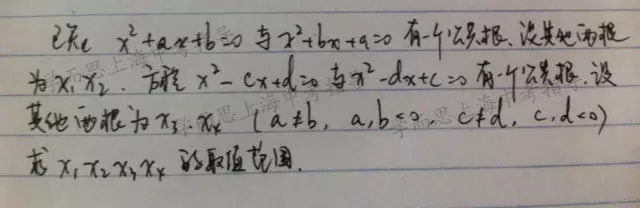 已知 x²+ax+b=0 与 x²+bx+a=0 有一个公共根、设其他两根
为 x₁ x₂. 方程 x²-cx+d=0 与 x²-dx+c=0 有一个公共根. 设
其他两根为 x₃. x₄ (a≠b, a,b<0. c≠d, c,d<0)
求 x₁ x₂ x₃ x₄ 的取值范围.